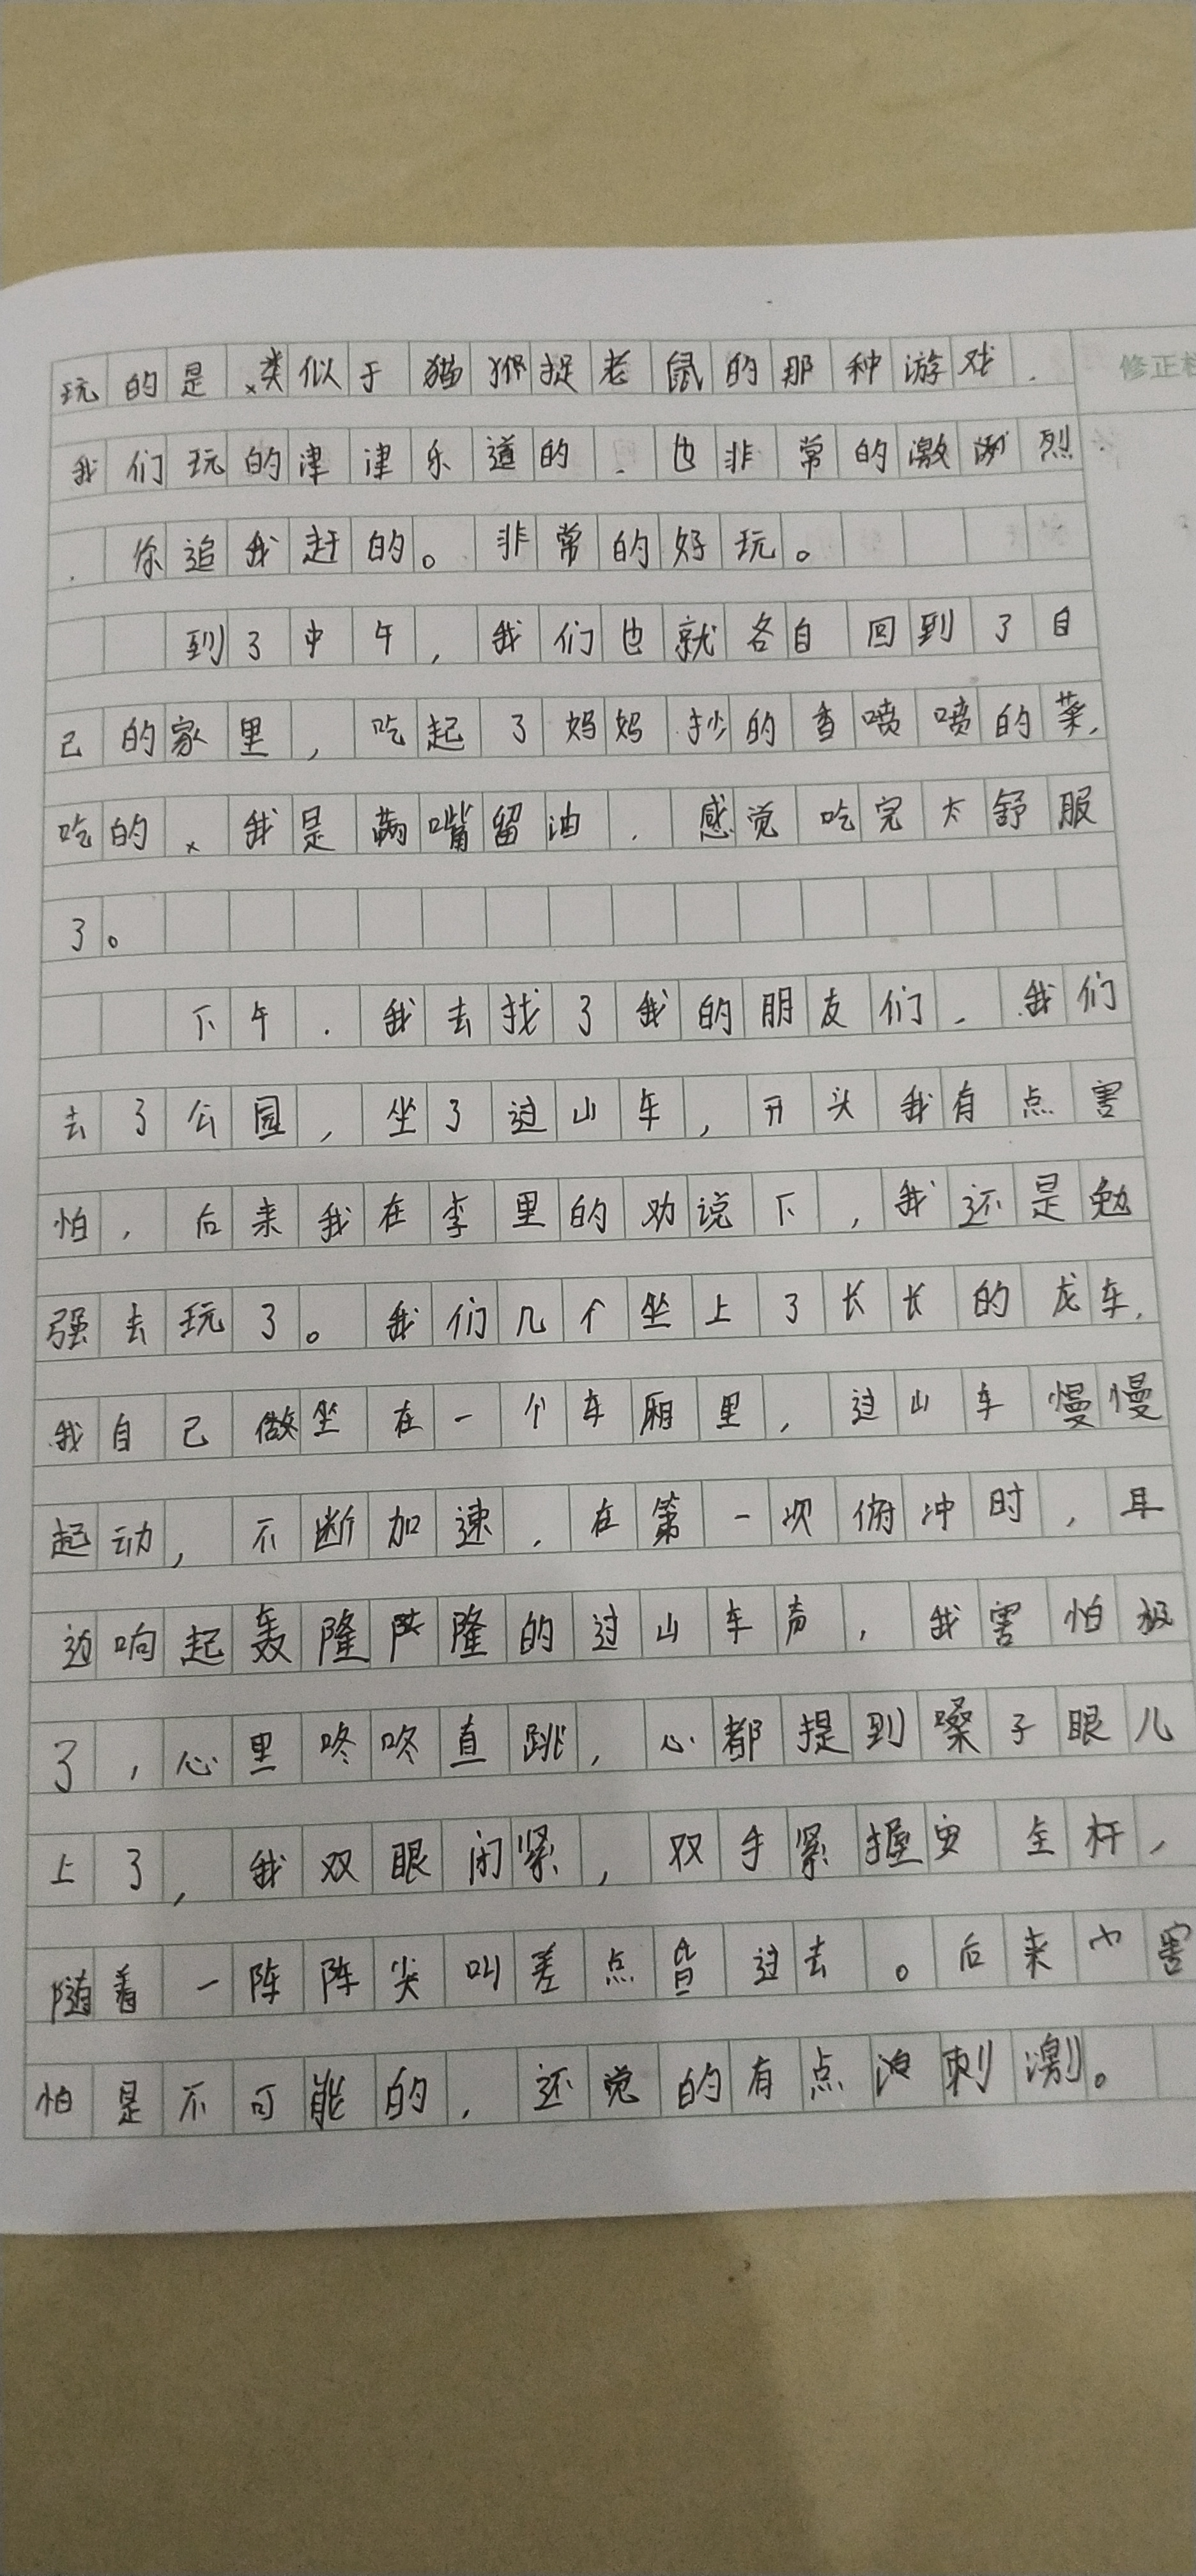 玩的是类似于猫捉老鼠的那种游戏.
修正栏
我们玩的津津乐道的.也非常的激烈
.你追我赶的。非常的好玩。
到了中午,我们也就各自回到了自
己的家里,吃起了妈妈抄的香喷喷的菜,
吃的我是满嘴留油.感觉吃完太舒服
了。
下午.我去找了我的朋友们.我们
去了公园,坐了过山车,开头我有点害
怕,后来我在李里的劝说下,我还是勉
强去玩了。我们几个坐上了长长的龙车,
我自己坐在一个车厢里,过山车慢慢
起动,不断加速.在第一次俯冲时,耳
边响起轰隆隆的过山车声,我害怕极
了,心里咚咚直跳,心都提到嗓子眼儿
上了,我双眼闭紧,双手紧握安全杆,
随着一阵阵尖叫差点昏过去。后来害
怕是不可能的.还觉的有点刺激。